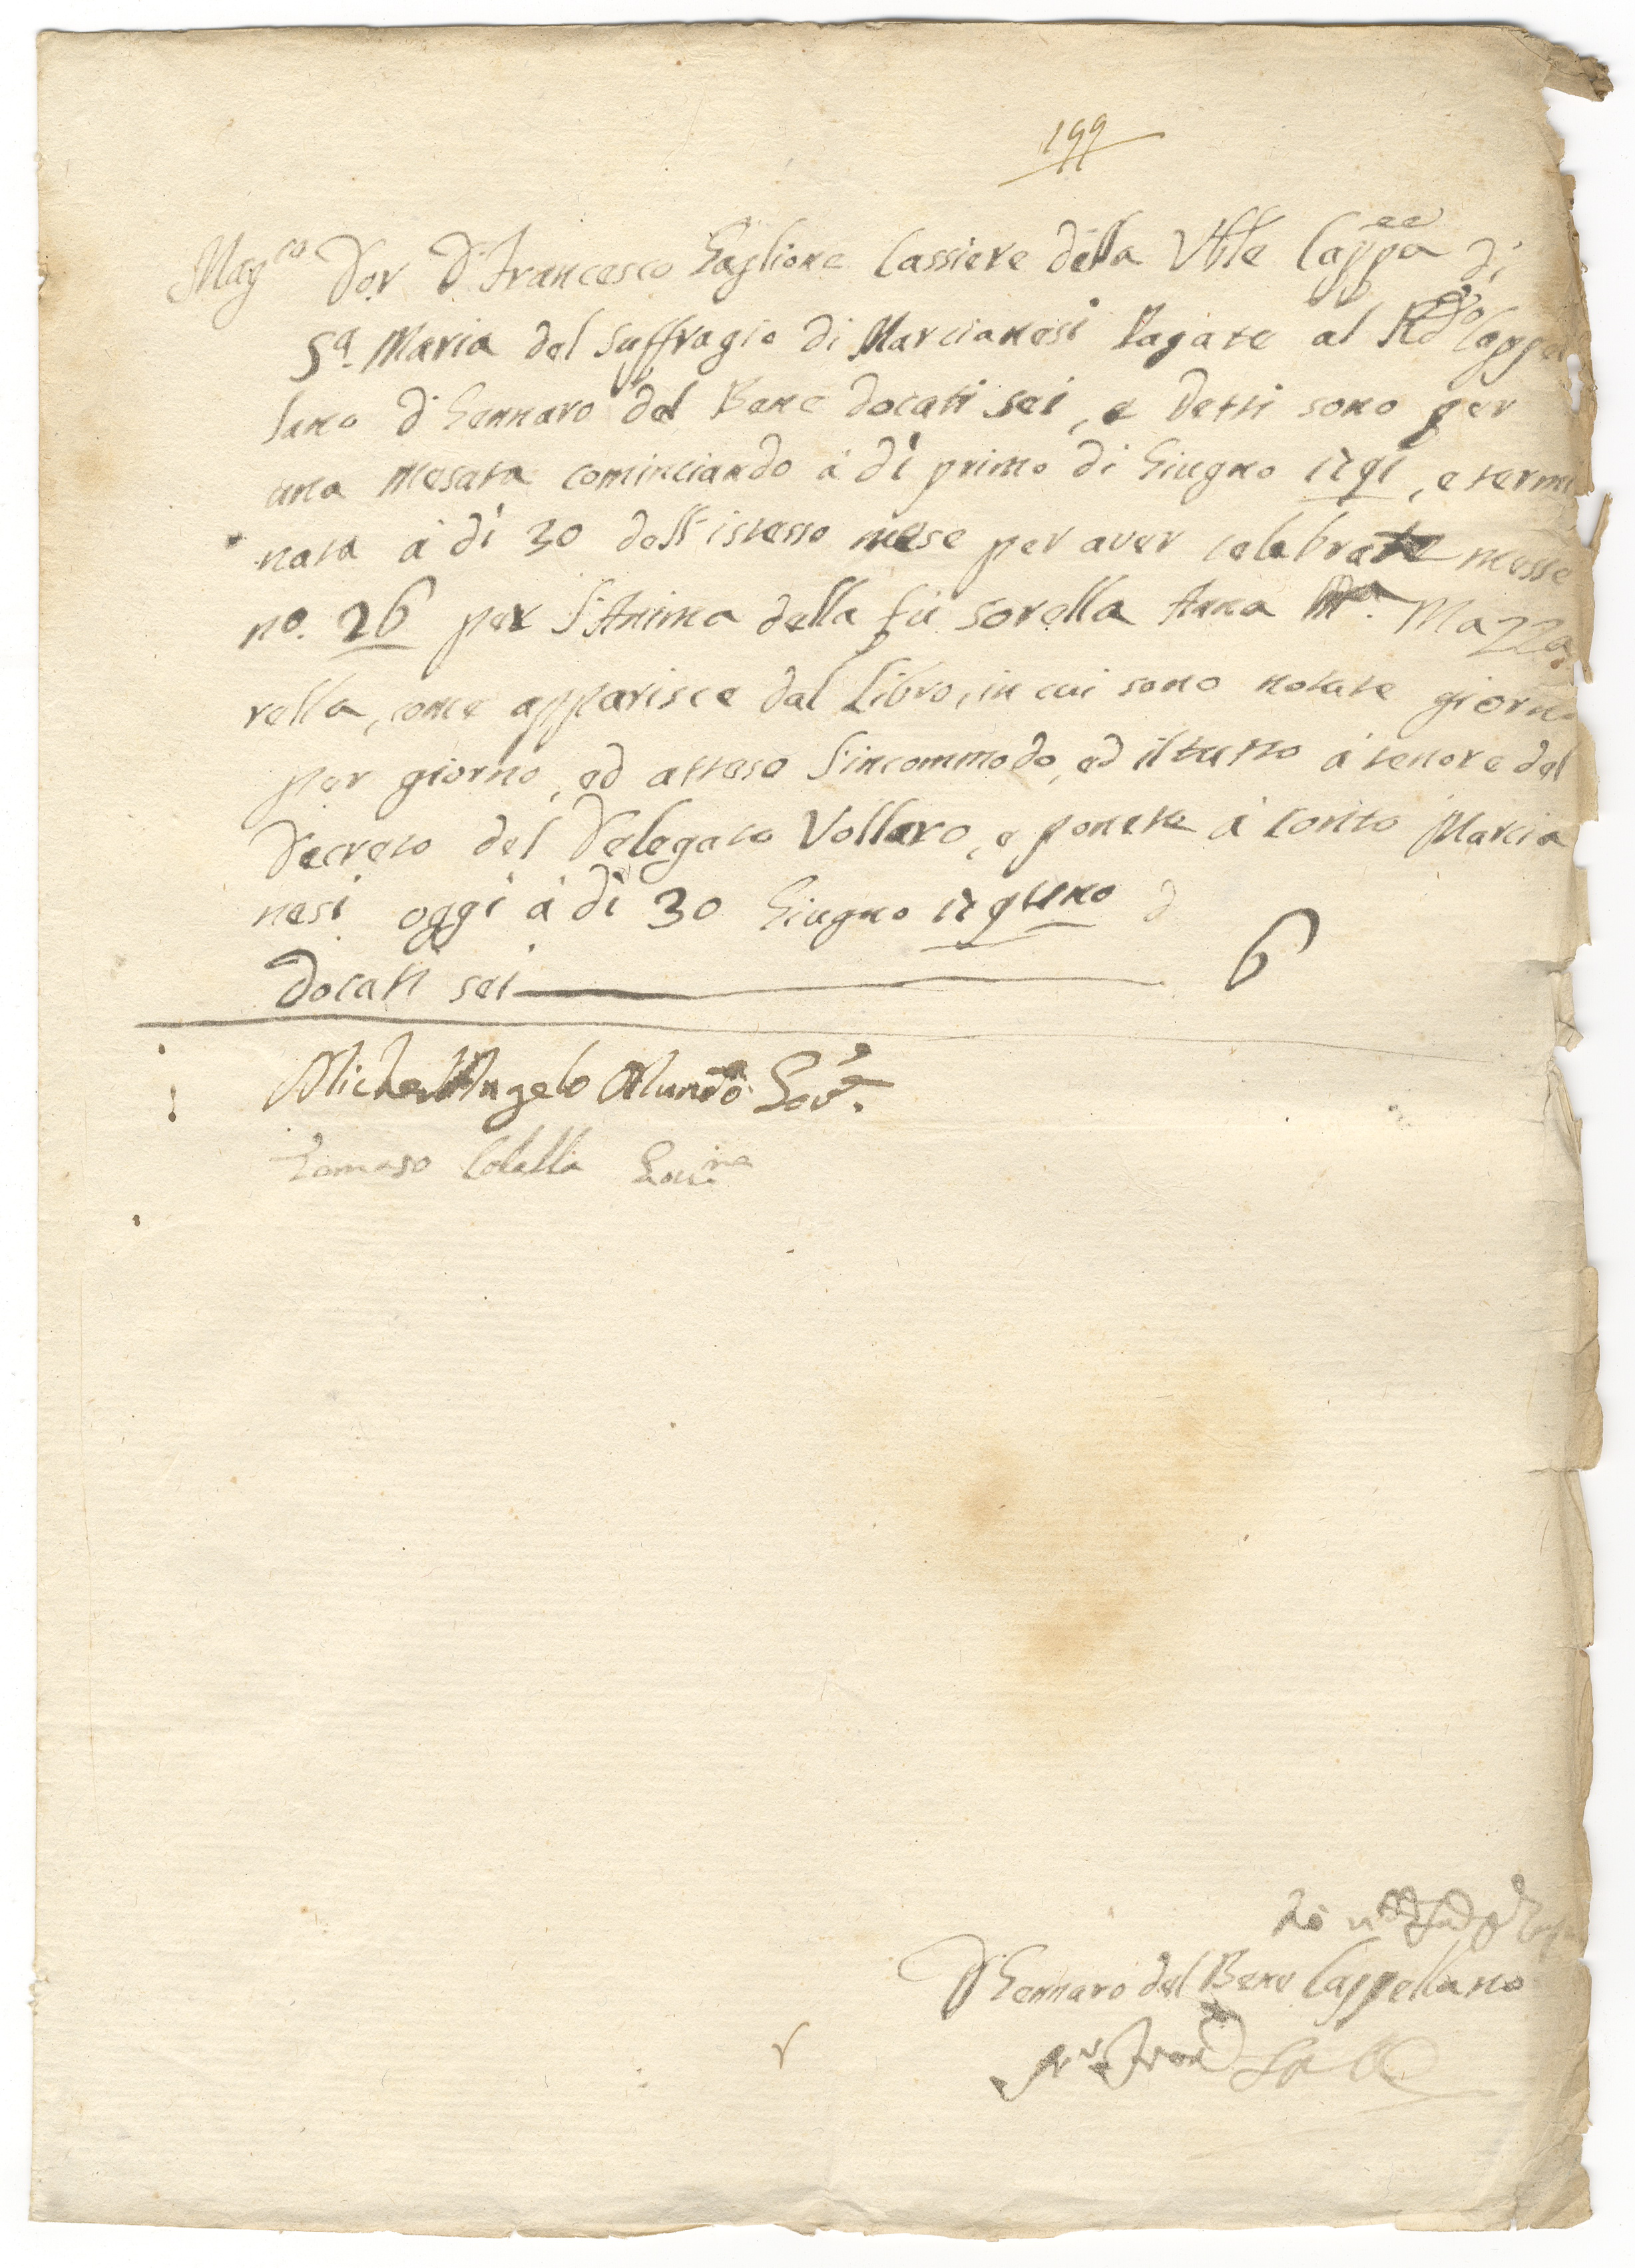 199
Mag.co Dor D. Francesco Taglione Cassiere della Vble Cappa di
S.a Maria del Suffragio di Marcianesi Pagate al Rdo Cappel
lano D. Gennaro del Bene docati sei, e detti sono per
una mesata cominciando à dì primo di Giugno 1791, e termi
nata à dì 30 dell'istesso mese per aver celebrate messe
no. 26 per l'Anima della fù sorella Anna Ma. Mazza
rella, come apparisce dal Libro, in cui sono notate giorno
per giorno, ed atteso l'incommodo, ed il tutto à tenore del
Decreto del Delegato Vollaro, e ponete à conto Marcia
nesi oggi à dì 30 Giugno 179uno d
docati sei 6
Michel'Angelo Mundo Gov.e
Tomaso Colella
D. Gennaro del Bene Cappellano